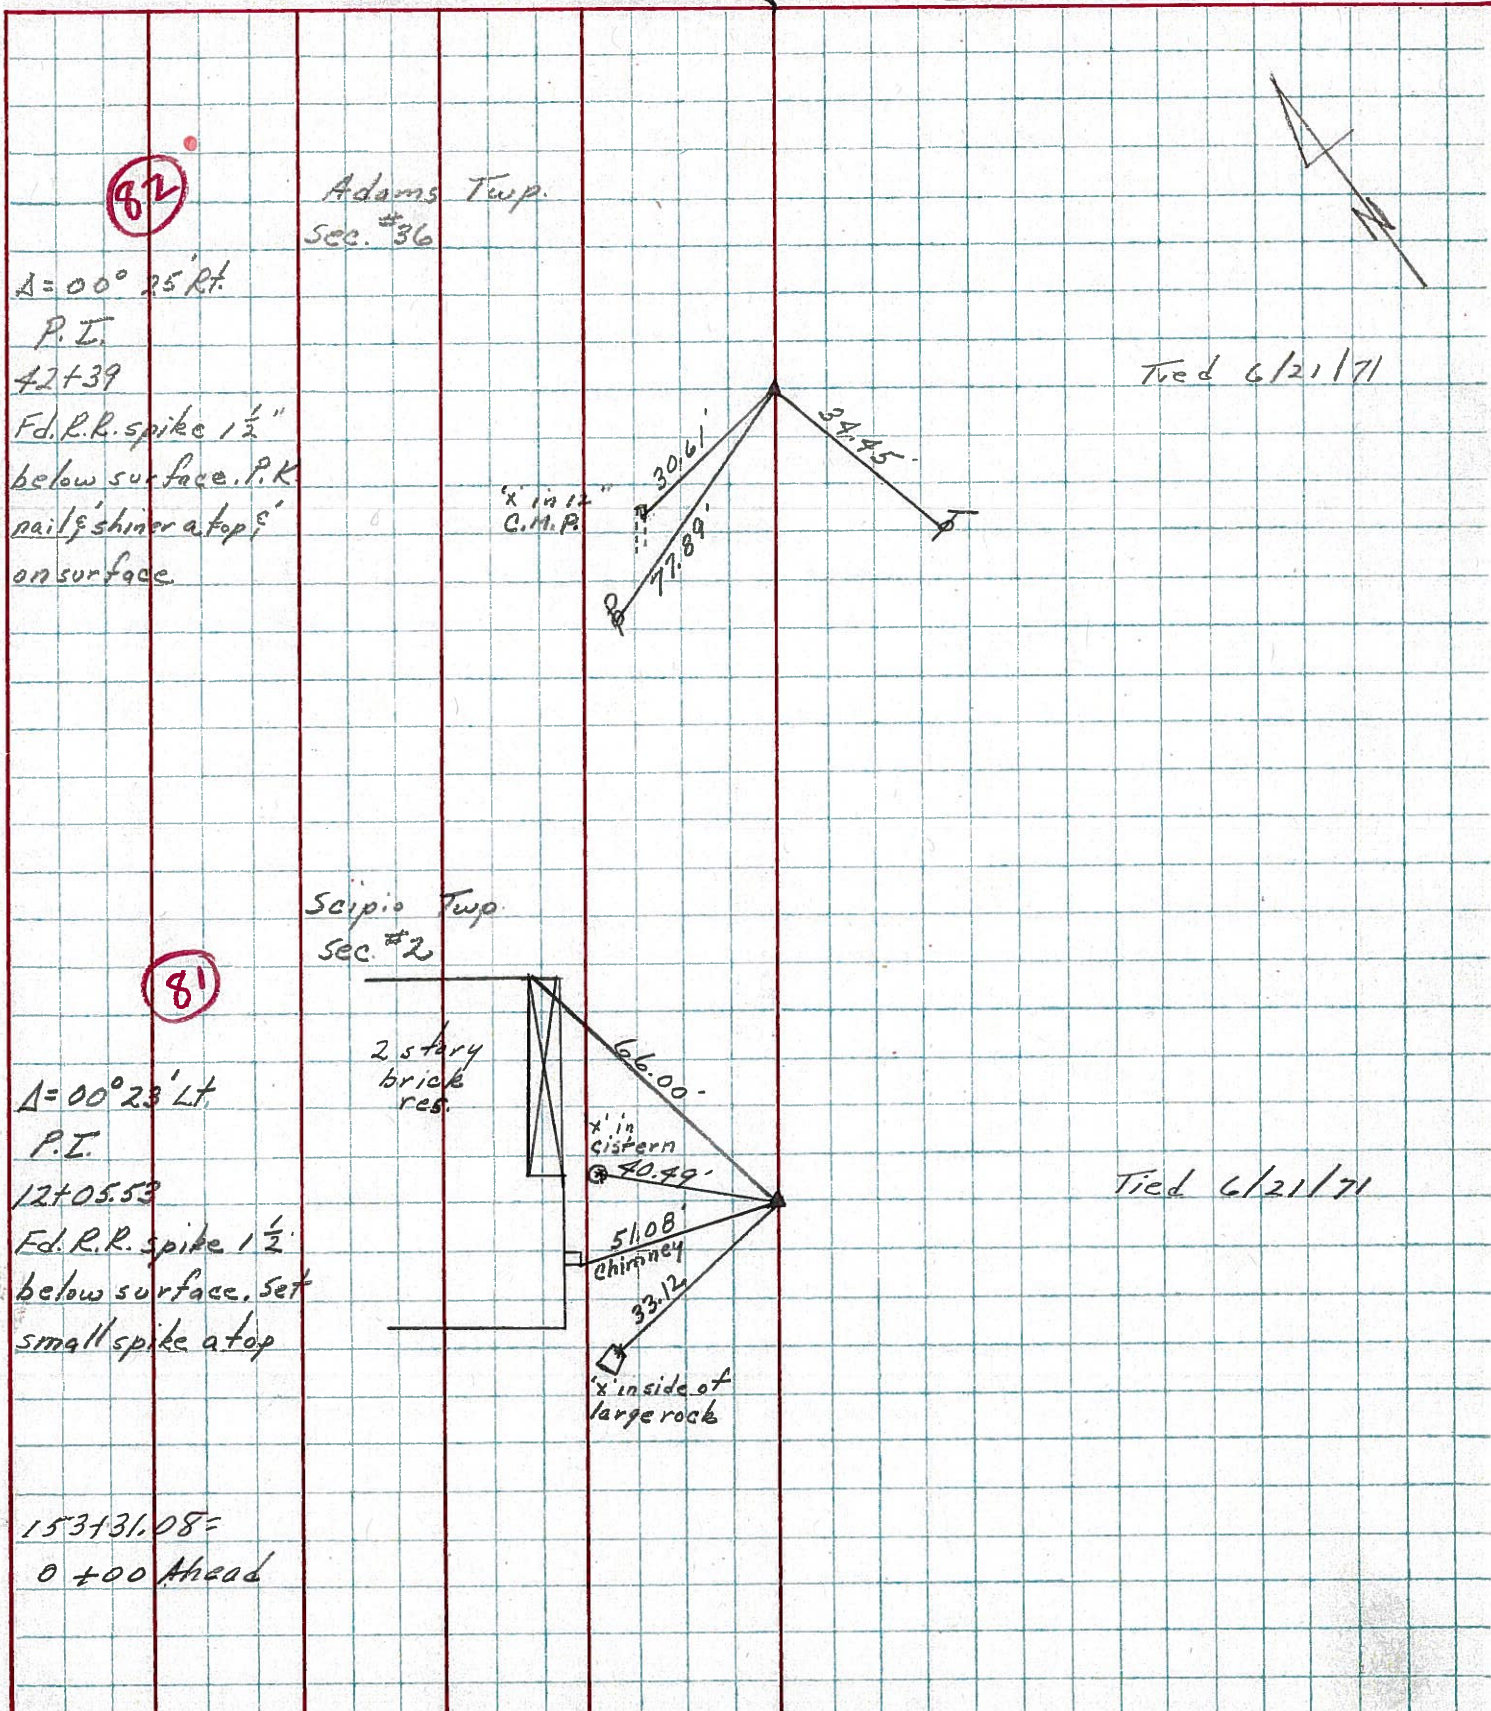 82
Adams Twp.
Sec. #36
Δ=00° 25' Rt.
P.I.
42+39
Fd. R.R. spike 1 1/2"
below surface. P.K.
nail & shiner atop &
on surface
N
Tied 6/21/71
30.61'
34.45'
77.89'
'x' in 12"
C.M.P.
Scipio Twp.
Sec. #2
81
Δ=00° 23' Lt.
P.I.
12+05.53
Fd. R.R. spike 1 1/2"
below surface. Set
small spike atop
2 story
brick
res.
66.00'
'x' in
cistern
40.49'
51.08'
Chimney
33.12
'x' in side of
large rock
Tied 6/21/71
153+31.08=
0+00 Ahead